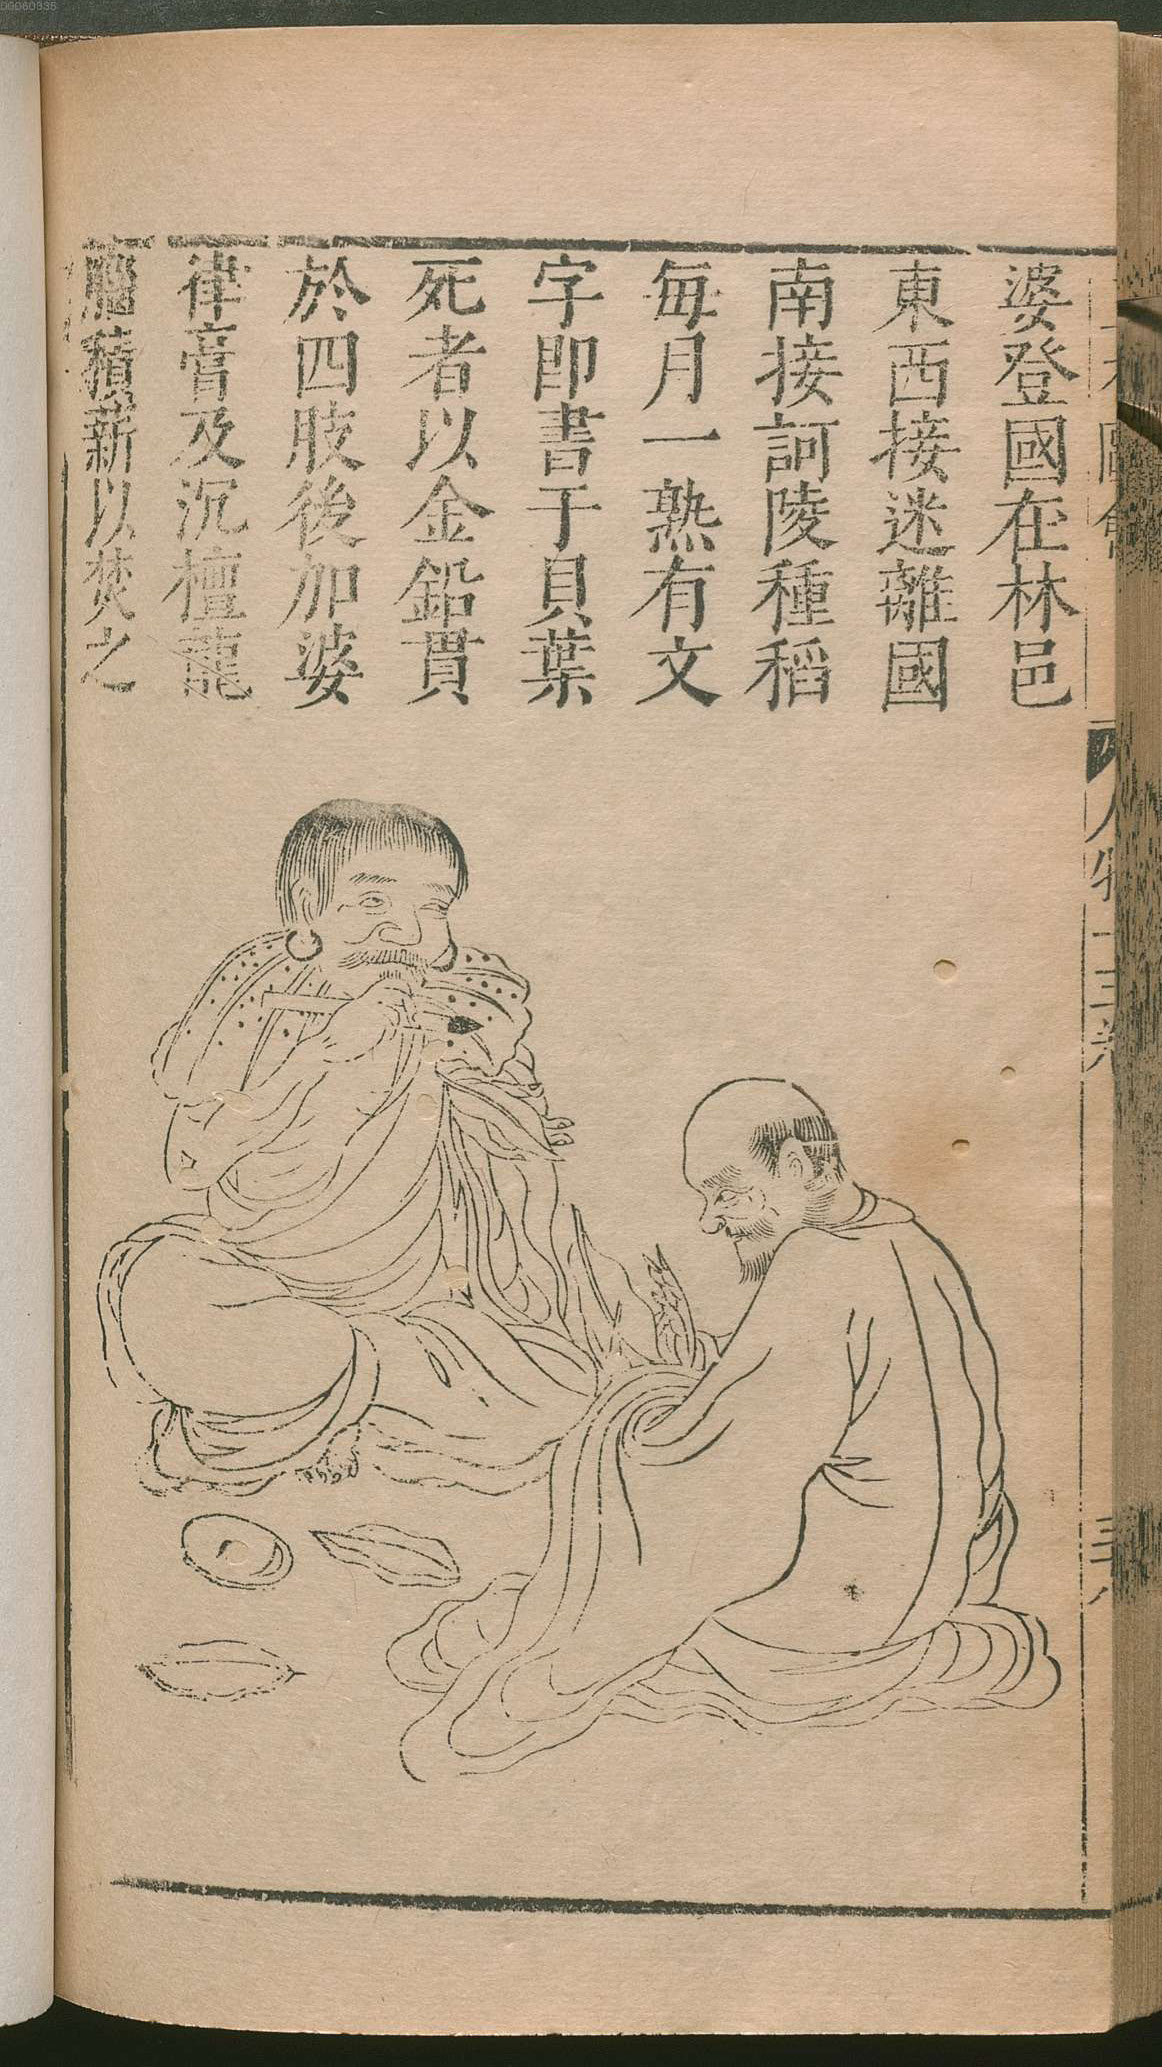 婆登國在林邑
東西接迷離國
南接訶陵種稻
每月一熟有文
字即書于貝葉
死者以金鉛貫
於四肢後加婆
律膏及沉檀龍
腦積薪以焚之
人物十三卷
00060336